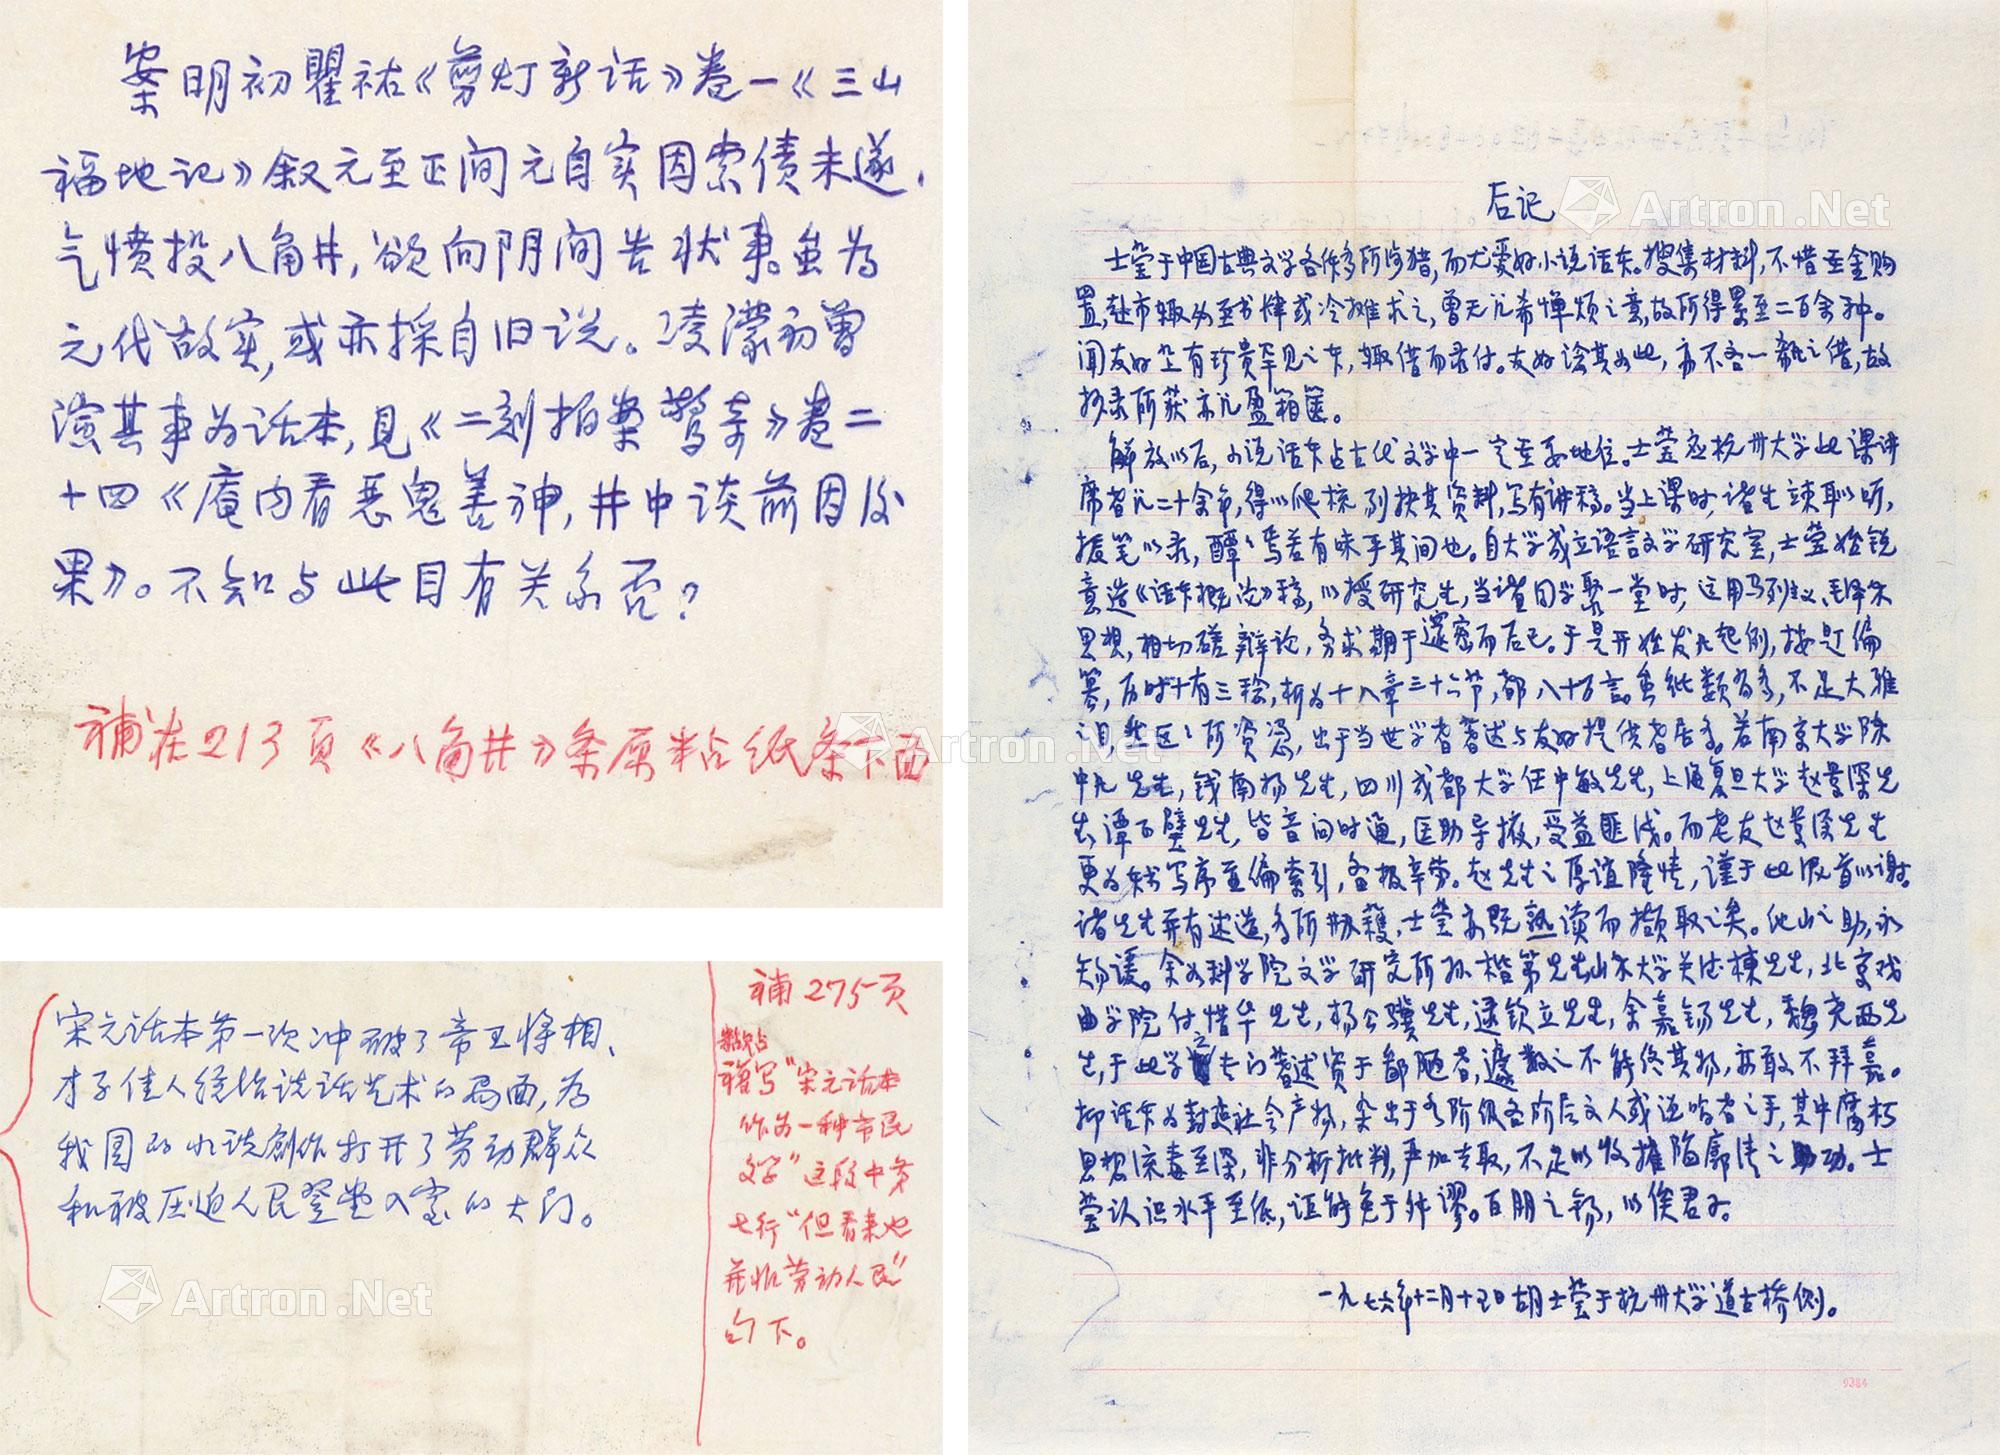 案明初瞿祐《剪灯新话》卷一《三山
福地记》叙元至正间元自实因索债未遂，
气愤投八角井，欲向阴间告状事。虽为
元代故实，或亦採自旧说。凌濛初曾
演其事为话本，见《二刻拍案惊奇》卷二
十四《庵内看恶鬼善神，井中谈前因后
果》。不知与此目有关系否？
補在213頁《八角井》条原粘纸条下面
宋元话本第一次冲破了帝王将相、
才子佳人统治说话艺术的局面，为
我国的小说创作打开了劳动群众
和被压迫人民登堂入室的大门。
補275页
粘
補写"宋元话本
作为一种市民
文学"这段中第
七行"但看来也
并非劳动人民"
的下。
后记
士莹于中国古典文学各体多所涉猎，而尤爱好小说话本。搜集材料，不惜重金购
置，赴市辄必至书肆或冷摊求之，曾无几希惮烦之意，故所得累至二百余种。
闻友好中有珍贵罕见之本，辄借而录付。友好谂其如此，亦不吝一瓻之借，故
抄录所获亦几盈箱箧。
解放以后，小说话本占古代文学中一定重要地位。士莹忝杭州大学此课讲
席者凡二十余年，得以爬梳剔抉其资料，写有讲稿。当上课时，诸生竦耳以听，
援笔以录，醰醰焉若有味乎其间也。自大学成立语言文学研究室，士莹始锐
意造《话本概论》稿，以授研究生，当诸同学聚一堂时，运用马列主义、毛泽东
思想，相切磋辩论，务求期于邃密而后已。于是开始发凡起例，按题编
纂，历时十有三稔，析为十八章三十六节，都八十万言。虽纸数若多，不足大雅
一哂，然区区所资凭，出于当世学者著述与友好提供者居多。若南京大学陈
中凡先生，钱南扬先生，四川成都大学任中敏先生，上海复旦大学赵景深先
生，谭正璧先生，皆音问时通，匡助导掖，受益匪浅。而老友赵景深先生
更为我写序并编索引，备极辛劳。赵先生之厚谊隆情，谨于此泥首以谢。
诸先生并有述造，多所收获，士莹亦既熟读而撷取之矣。他山之助，永
矢勿谖。余如科学院文学研究所孙楷第先生，山东大学关德栋先生，北京戏
曲学院付惜华先生，杨公骥先生，逯钦立先生，余嘉锡先生，魏尧西先
生，于此学之专门著述资于鄙陋者，遽数之不能终其物，亦敢不拜嘉。
抑话本为封建社会产物，杂出于各阶级各阶层文人或说唱者之手，其中腐朽
思想流毒至深，非分析批判，严加去取，不足以收摧陷廓清之功。士
莹认识水平至低，讵能免于舛谬。百朋之锡，以俟君子。
一九七六年十二月十五日胡士莹于杭州大学道古桥侧。
9384
Artron.Net
Artron.Net
Artron.Net